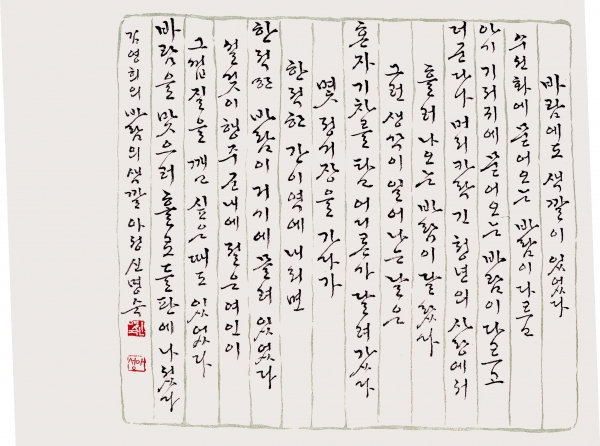 바람에도 색깔이 있었다
수선화에 불어오는 바람이 다르고
아기 불어오는 바람이 다르고
더군다나 머리카락 긴 청년의
흘러 나오는 바람이 달랐다
그런 생각이 일어나는 날은
혼자 기차를 타고 어디론가 달려갔다
몇 정거장을 가다가
한적한 간이역에 내리면
한적한 바람이 거기에 몰려 있었다
설것이 행주 군내에 절은 여인이
그 껍질을 깨고 싶은 때도 있었다
바람을 맞으러 홀로 들판에 나섰다
김영희의 바람의 색깔 아정 신명숙